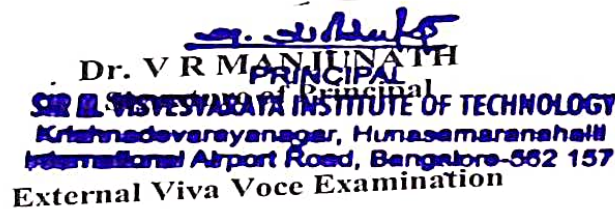 Dr. V R MANJUNATH
PRINCIPAL
Signature of Principal
SIR M. VISVESVARAYA INSTITUTE OF TECHNOLOGY
Krishnadevarayanagar, Hunasamaranahalli
International Airport Road, Bangalore-562 157
External Viva Voce Examination